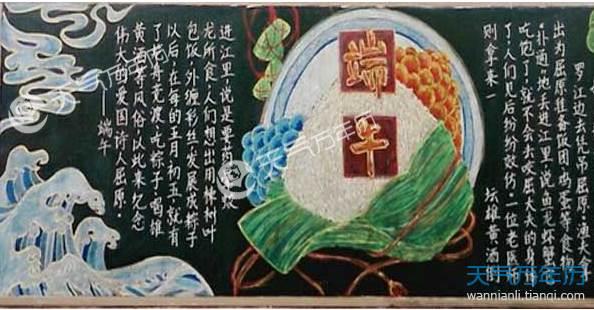 罗江边去凭吊屈原。渔夫拿
出为屈原准备饭团、鸡蛋等食物
“扑通”地丢进江里,说鱼龙虾蟹
吃饱了,就不会去咬屈大夫的身
了,人们见后纷纷效仿。一位老医
则拿来一
坛雄黄酒倒
端午
进江里,说是要药
龙所食,人们想出用楝树叶
包饭,外缠彩丝,发展成粽子
以后,在每的五月初五,就有
了龙舟竞渡、吃粽子、喝雄
黄酒等风俗;以此来纪念
伟大的爱国诗人屈原。
——端午
天气万年历
天气万年历
wannianli.tianqi.com